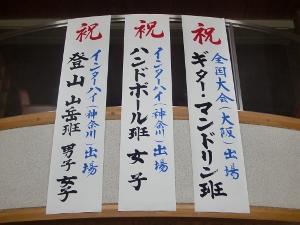 祝
全国大会(大阪)出場
ギター・マンドリン班
祝
インターハイ(神奈川)出場
ハンドボール班 女子
祝
インターハイ(神奈川)出場
登山 山岳班 男子 女子